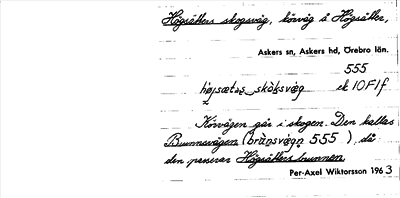 Högsätters skogsväg, körväg å Högsätter,
Askers sn, Askers hd, Örebro län.
555
høgsætəs skòksvæg ek 10F1f
Körvägen går i skogen. Den kallas
Brunnsvägen (brùnsvægn 555 ), då
den passerar Högsätters brunnen.
Per-Axel Wiktorsson 1963